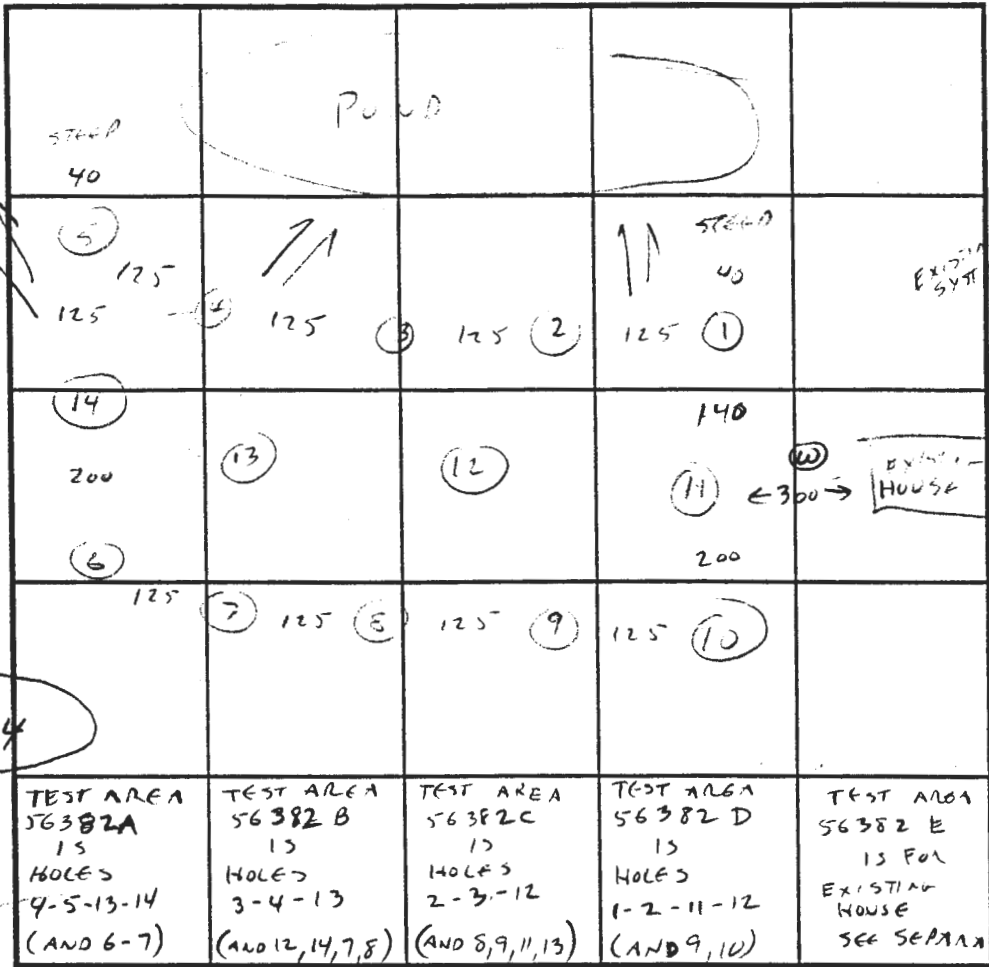 POND
STEEP
40
5
125
125
4
125
3
125
2
125
1
STEEP
40
14
200
6
13
12
140
11
200
W
←300→
HOUSE
125
7
125
8
125
9
125
10
4
TEST AREA
56382A
IS
HOLES
4-5-13-14
(AND 6-7)
TEST AREA
56382 B
IS
HOLES
3-4-13
(AND 12,14,7,8)
TEST AREA
56382C
IS
HOLES
2-3-12
(AND 8,9,11,13)
TEST AREA
56382 D
IS
HOLES
1-2-11-12
(AND 9,10)
TEST AREA
56382 E
IS FOR
EXISTING
HOUSE
SEE